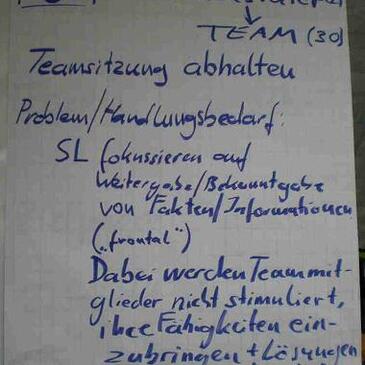 TEAM (30)
Teamsitzung abhalten
Problem/Handlungsbedarf:
SL fokussieren auf
Weitergabe/Bekanntgabe
von Fakten/Informationen
("frontal")
Dabei werden Teammit-
glieder nicht stimuliert,
ihre Fähigkeiten ein-
zubringen + Lösungen